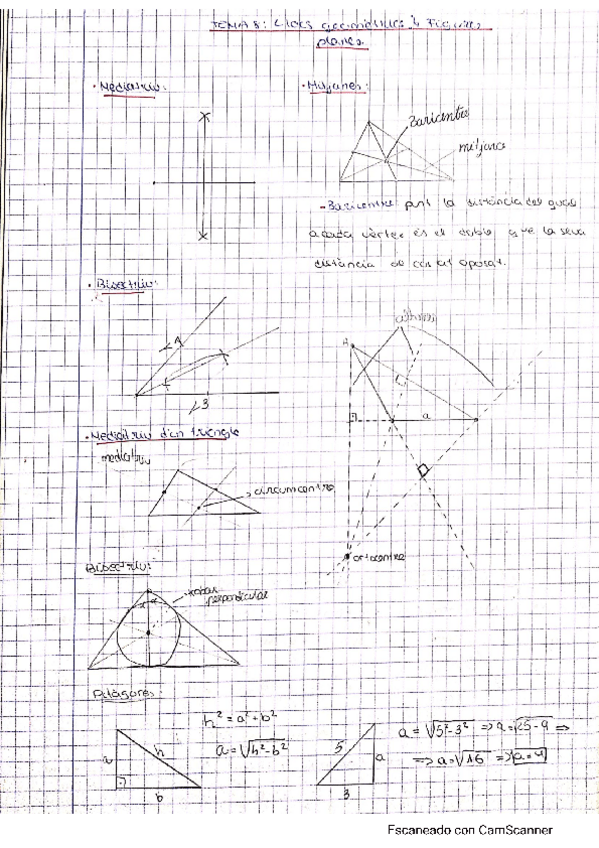 TEMA 8: Llocs geomètrics i Figures
planes.
· Mediatriu:
· Mitjanes:
Baricentre
mitjana
- Baricentre: punt la distància del qual
a cada vèrtex és el doble que la seva
distància al costat oposat.
· Bisectriu:
altures
A
a
· Mediatriu d'un triangle
mediatriu
circumcentre
ortocentre
Bisectriu:
perpendicular
α α
Pitàgores:
h² = a² + b²
a = √h²-b²
a
h
b
5
a
3
a = √5²-3² ⇒ a = √25-9 ⇒
⇒ a = √16 ⇒ a = 4
Escaneado con CamScanner